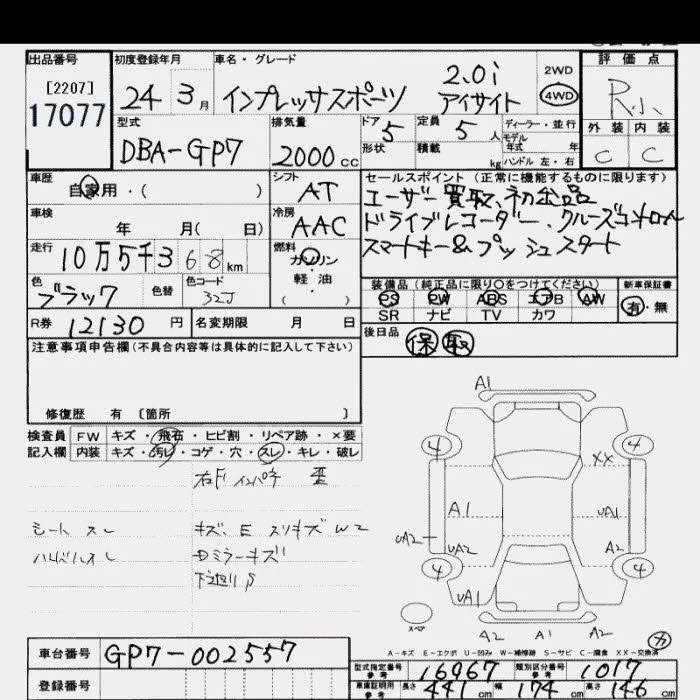 出品番号
[2207]
17077
初度登録年月
24 3 月
車名・グレード
インプレッサスポーツ
2.0i
アイサイト
2WD
4WD
評価点
R小
外装 内装
C C
型式
DBA-GP7
排気量
2000 cc
ドア 5
形状
定員 5 人
積載 kg
ディーラー・並行
モデル
年式 年
ハンドル 左・右
車歴
自家用・( )
シフト
AT
車検
年 月( 日)
冷房
AAC
走行
10万5千368 km
燃料
ガソリン
軽・油
( )
色
ブラック
色替
色コード
32J
R券 12130 円
名変期限 月 日
セールスポイント (正常に機能するものに限ります)
ユーザー買取、初出品
ドライブレコーダー、クルーズコントロール
スマートキー&プッシュスタート
装備品(純正品に限り○をつけてください)
PS PW ABS エアB AW
SR ナビ TV カワ
新車保証書
有・無
後日品 保 取
注意事項申告欄(不具合内容等は具体的に記入して下さい)
修復歴 有 〔箇所 〕
検査員
記入欄
FW キズ・飛石・ヒビ割・リペア跡・×要
内装 キズ・汚レ・コゲ・穴・スレ・キレ・破レ
右F インパネ 歪
シート スレ
キズ、E スリキズ W2
ハンドルスレ
Dミラーキズ
下廻りS
A1
4 4
XX
A1 UA1
UA2 UA2 A2
4 4
UA1
スペア
A2 A1 A2
カ
A-キズ E-エクボ U-凹み W-補修跡 S-サビ C-腐食 XX-交換済
車台番号 GP7-002557
登録番号
型式指定番号 参考 16967
類別区分番号 参考 1017
車庫証明用 参考 長さ 441 cm 幅 174 cm 高さ 146 cm